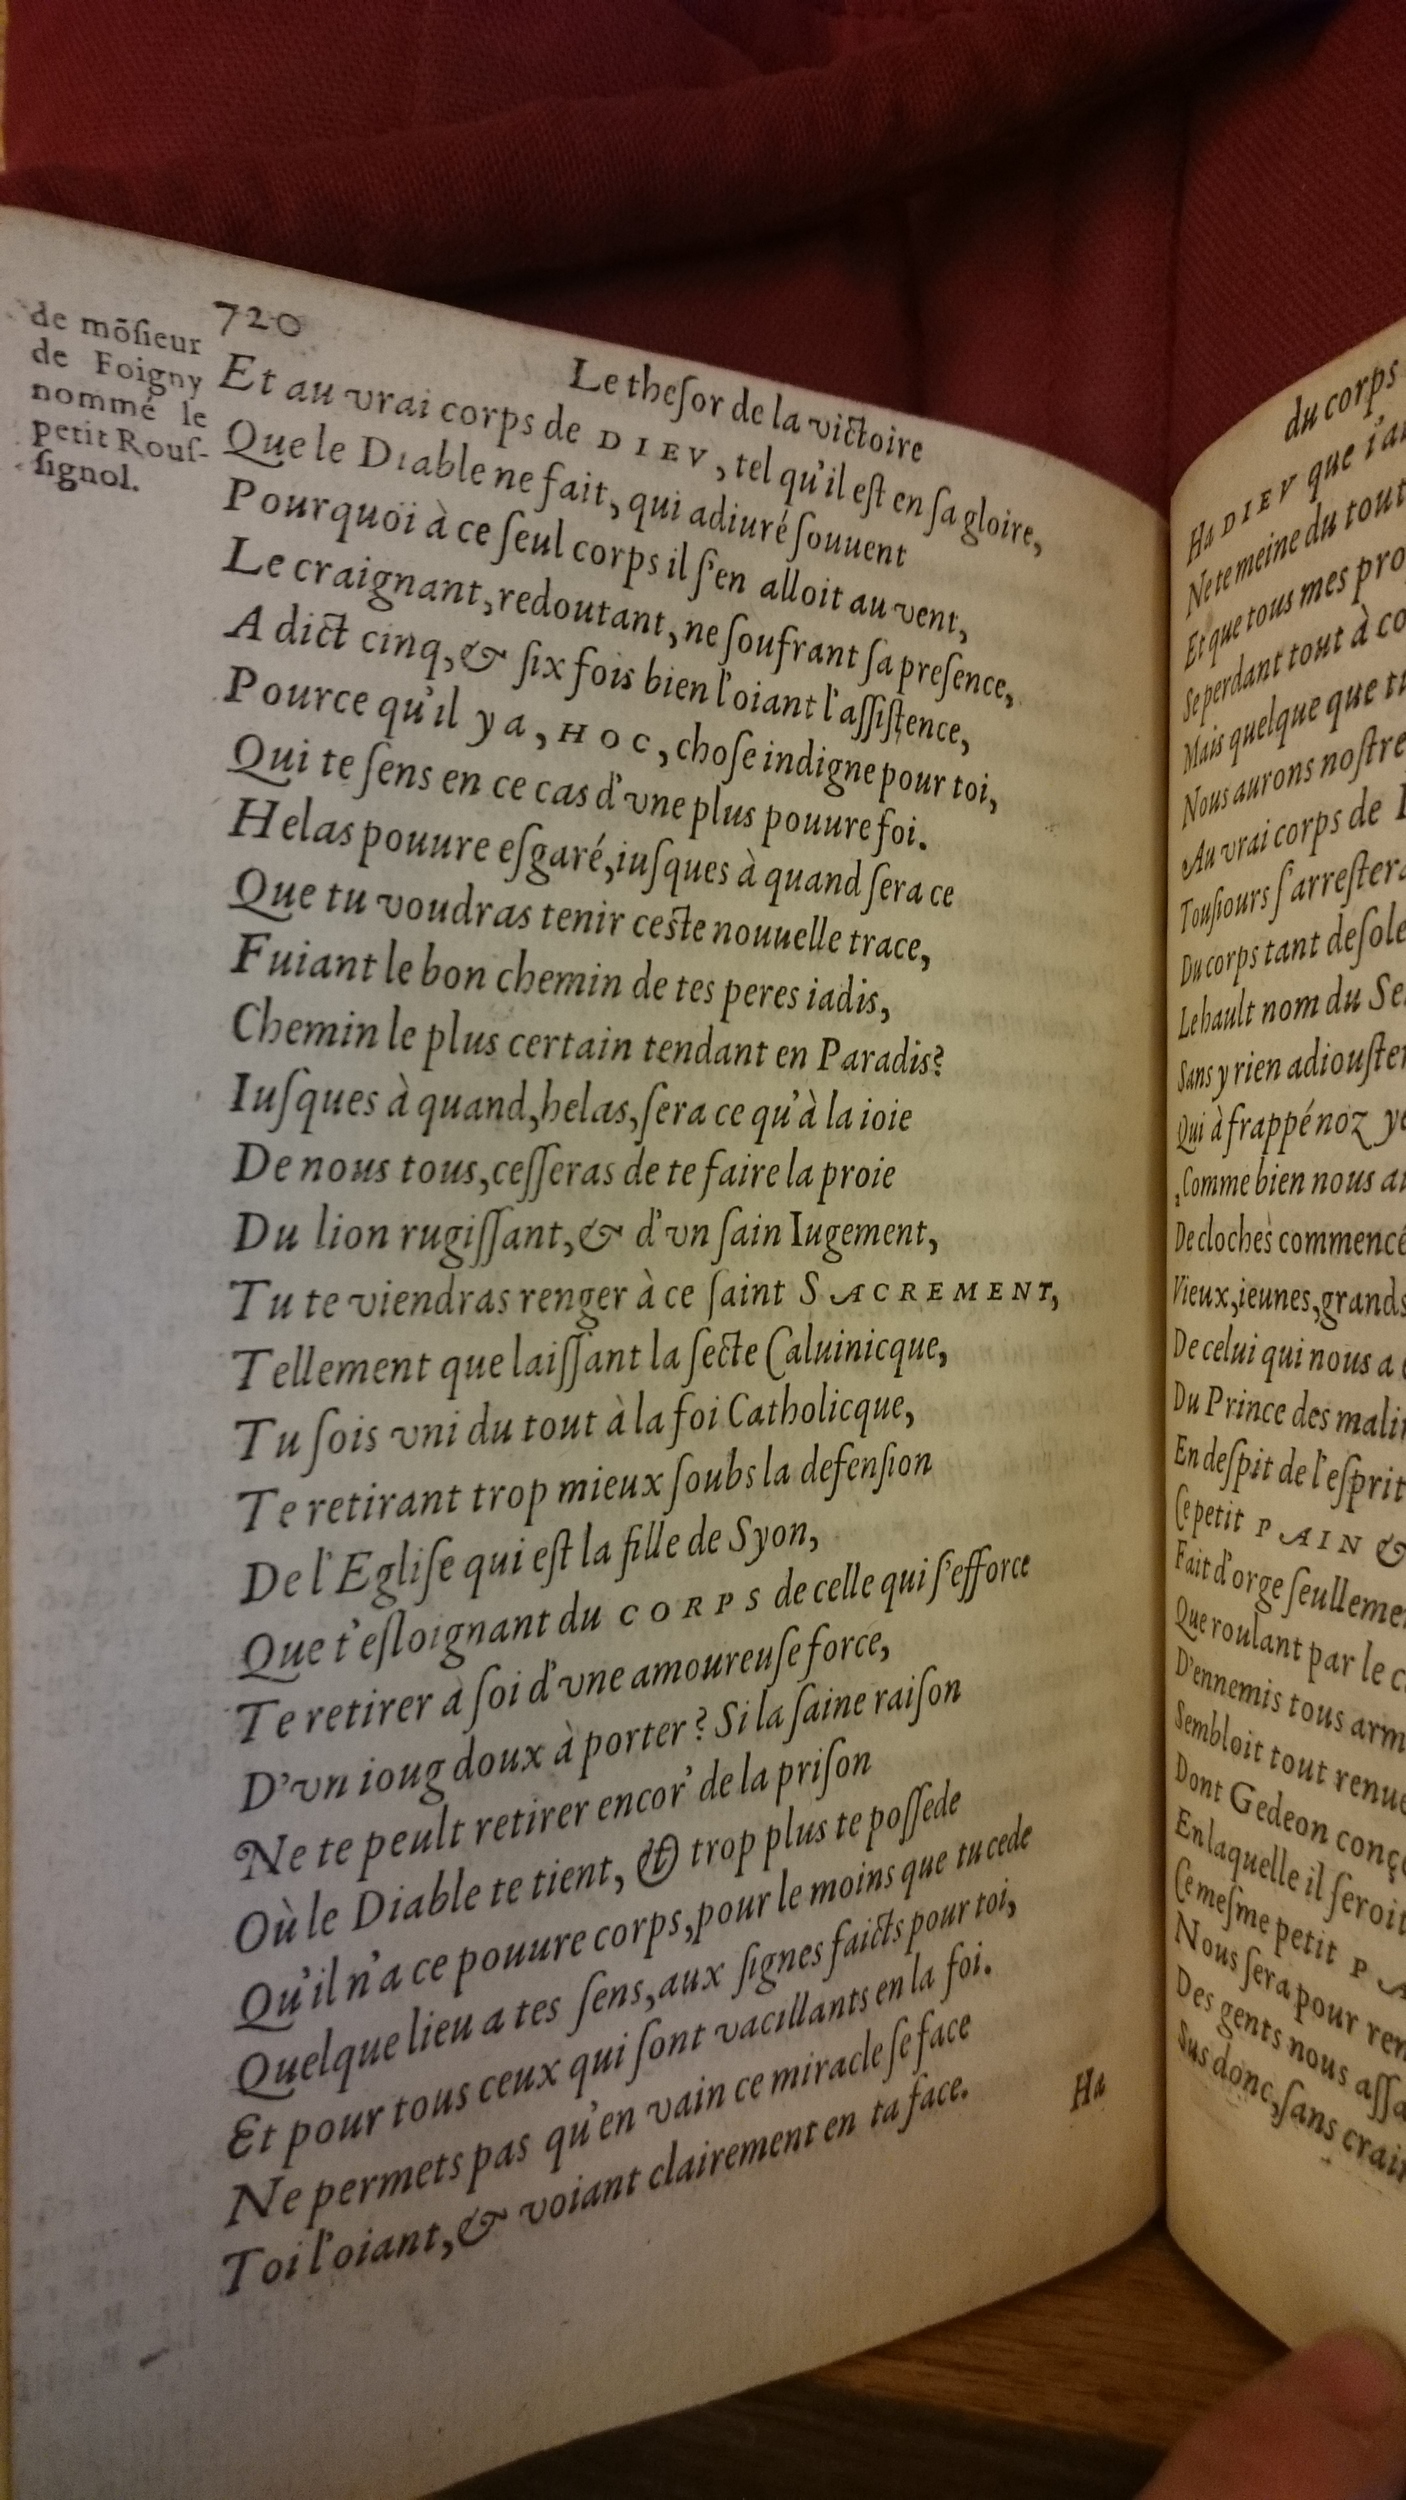 720
Le theſor de la victoire
de mõſieur
de Foigny
nommé le
petit Rouſ-
ſignol.
Et au vrai corps de DIEV, tel qu'il eſt en ſa gloire,
Que le Diable ne fait, qui adiuré ſouuent
Pourquoi à ce ſeul corps il ſ'en alloit au vent,
Le craignant, redoutant, ne ſoufrant ſa preſence,
A dict cinq, & ſix fois bien l'oiant l'aſſiſtence,
Pource qu'il y a, HOC, choſe indigne pour toi,
Qui te ſens en ce cas d'vne plus pouure foi.
Helas pouure eſgaré, iuſques à quand ſera ce
Que tu voudras tenir ceſte nouuelle trace,
Fuiant le bon chemin de tes peres iadis,
Chemin le plus certain tendant en Paradis?
Iuſques à quand, helas, ſera ce qu'à la ioie
De nous tous, ceſſeras de te faire la proie
Du lion rugiſſant, & d'vn ſain Iugement,
Tu te viendras renger à ce ſaint SACREMENT,
Tellement que laiſſant la ſecte Caluinicque,
Tu ſois vni du tout à la foi Catholicque,
Te retirant trop mieux ſoubs la defenſion
De l'Egliſe qui eſt la fille de Syon,
Que t'eſloignant du CORPS de celle qui ſ'efforce
Te retirer à ſoi d'vne amoureuſe force,
D'vn ioug doux à porter? Si la ſaine raiſon
Ne te peult retirer encor' de la priſon
Où le Diable te tient, & trop plus te poſſede
Qu'il n'a ce pouure corps, pour le moins que tu cede
Quelque lieu a tes ſens, aux ſignes faicts pour toi,
Et pour tous ceux qui ſont vacillants en la foi.
Ne permets pas qu'en vain ce miracle ſe face
Toi l'oiant, & voiant clairement en ta face.
Ha
du corps
Ha DIEV que i'a
Ne te meine du tout
Et que tous mes pro
Se perdant tout à co
Mais quelque que tu
Nous aurons noſtre
Au vrai corps de
Touſiours ſ'arreſtera
Du corps tant deſole
Le hault nom du Se
Sans y rien adiouſter
Qui à frappé noz ye
Comme bien nous a
De cloches commencé
Vieux, ieunes, grands
De celui qui nous a
Du Prince des malin
En deſpit de l'eſprit
Ce petit PAIN &
Fait d'orge ſeulleme
Que roulant par le c
D'ennemis tous arm
Sembloit tout renue
Dont Gedeon conç
En laquelle il ſeroit
Ce meſme petit PA
Nous ſera pour ren
Des gents nous aſſa
Sus donc, ſans crain